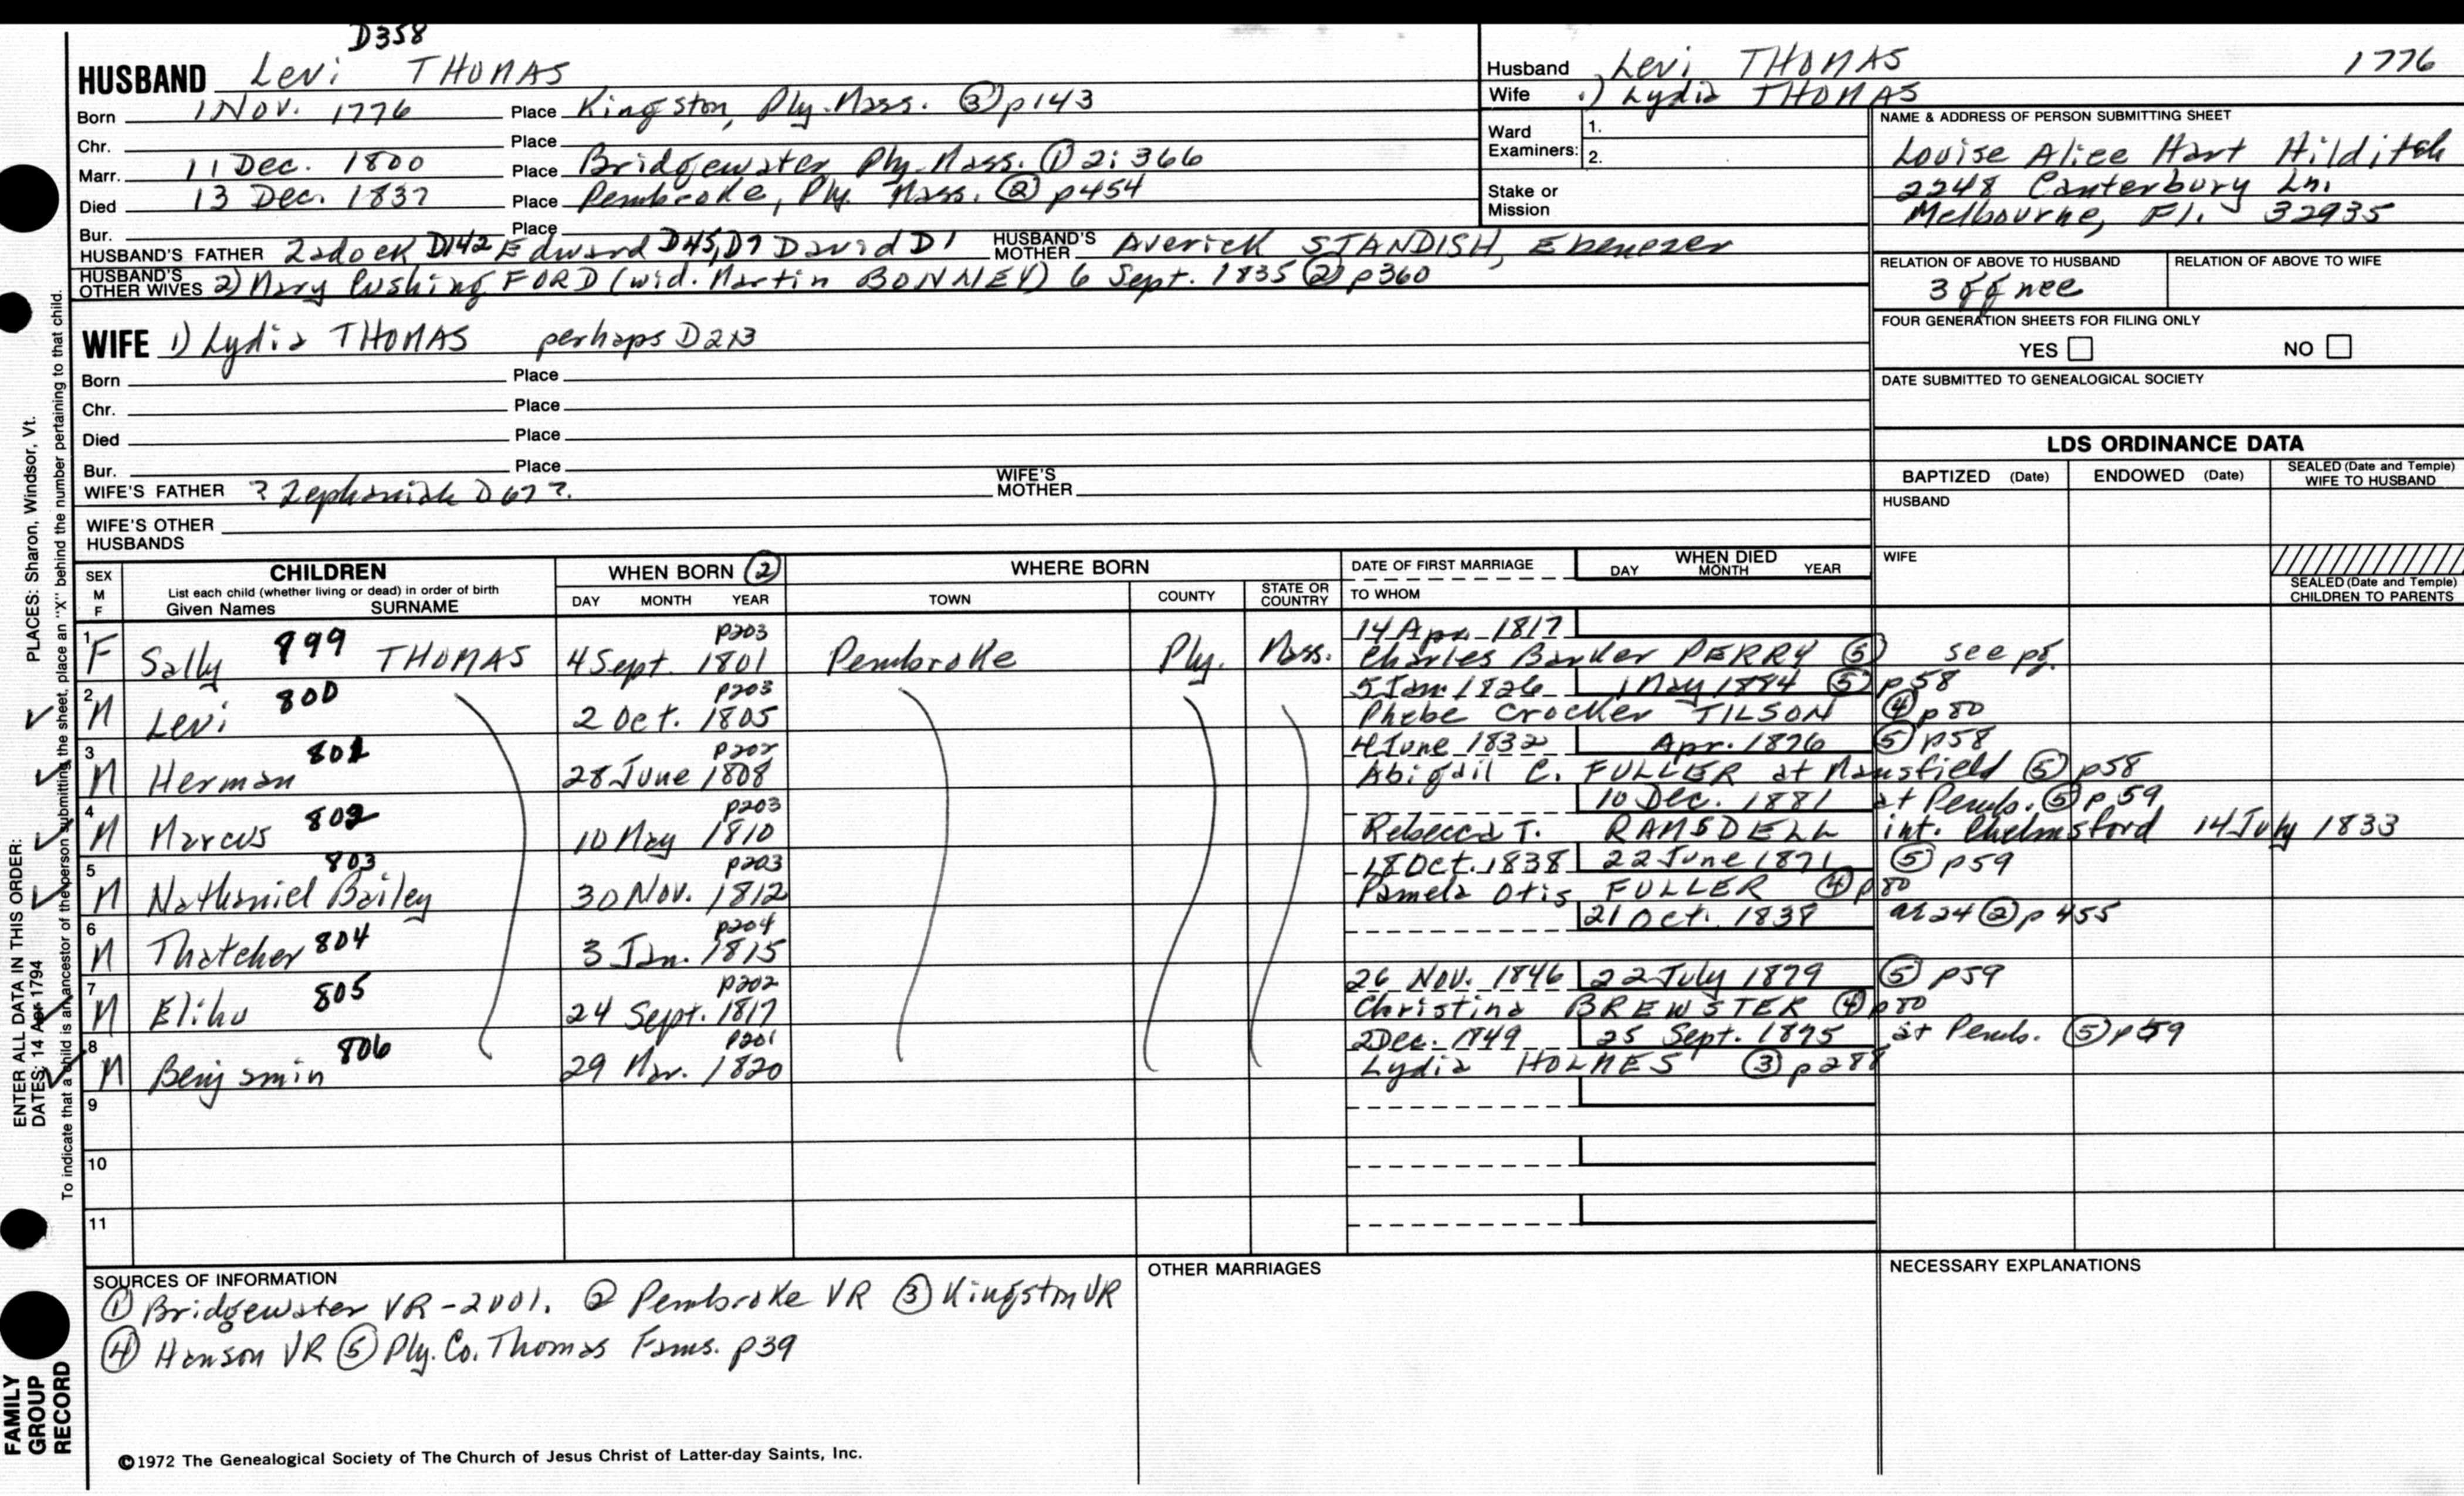 D358
HUSBAND Levi THOMAS
Born 1 Nov. 1776 Place Kingston, Ply. Mass. ③ p143
Chr. Place
Marr. 11 Dec. 1800 Place Bridgewater Ply. Mass. ① 2:366
Died 13 Dec. 1837 Place Pembroke, Ply. Mass. ② p454
Bur. Place
HUSBAND'S FATHER Zadock D142 Edward D45, D7 David D1 HUSBAND'S MOTHER Averick STANDISH, Ebenezer
HUSBAND'S OTHER WIVES 2) Mary Cushing FORD (wid. Martin BONNEY) 6 Sept. 1835 ② p360
WIFE 1) Lydia THOMAS perhaps
Born Place
Chr. Place
Died Place
Bur. Place
WIFE'S FATHER ? Zephaniah D67 ?. WIFE'S MOTHER
WIFE'S OTHER HUSBANDS
Husband Levi THOMAS 1776
Wife 1) Lydia THOMAS
Ward Examiners: 1.
2.
Stake or Mission
NAME & ADDRESS OF PERSON SUBMITTING SHEET
Louise Alice Hart Hilditch
2248 Canterbury Ln.
Melbourne, Fl. 32935
RELATION OF ABOVE TO HUSBAND RELATION OF ABOVE TO WIFE
FOUR GENERATION SHEETS FOR FILING ONLY
YES NO
DATE SUBMITTED TO GENEALOGICAL SOCIETY
LDS ORDINANCE DATA
BAPTIZED (Date) ENDOWED (Date) SEALED (Date and Temple) WIFE TO HUSBAND
HUSBAND
WIFE
SEALED (Date and Temple) CHILDREN TO PARENTS
SEX M F CHILDREN List each child (whether living or dead) in order of birth Given Names SURNAME
WHEN BORN ② DAY MONTH YEAR
WHERE BORN TOWN COUNTY STATE OR COUNTRY
DATE OF FIRST MARRIAGE TO WHOM
WHEN DIED DAY MONTH YEAR
1 F Sally 899 THOMAS p203 4 Sept. 1801 Pembroke Ply. Mass. 14 Apr. 1817
Charles Barker PERRY ⑤ see
2 M Levi 800 p203 2 Oct. 1805 5 Jan 1826 1 May 1884 ⑤ p58
Phebe Crocker TILSON ④ p80
3 M Herman 801 p202 28 June 1808 4 June 1832 Apr. 1876 ⑤ p58
Abigail C. FULLER at Mansfield ⑤ p58
4 M Marcus 802 p203 10 May 1810 10 Dec. 1881 at Pemb. ⑤ p59
Rebecca T. RAMSDELL int. Chelmsford 14 July 1833
5 M Nathaniel Bailey 803 p203 30 Nov. 1812 18 Oct. 1838 22 June 1871 ⑤ p59
Pamela Otis FULLER ④ p80
6 M Thatcher 804 p204 3 Jan. 1815 21 Oct. 1838 ae 24 ② p455
7 M Elihu 805 p202 24 Sept. 1817 26 Nov. 1846 22 July 1879 ⑤ p59
Christina BREWSTER ④ p80
8 M Benjamin 806 p201 29 Mar. 1820 2 Dec. 1849 25 Sept. 1895 at Pemb. ⑤ p59
Lydia HOLMES ③ p288
9
10
11
SOURCES OF INFORMATION
① Bridgewater VR-2001. ② Pembroke VR ③ Kingston VR
④ Hanson VR ⑤ Ply. Co. Thomas Fams. p39
OTHER MARRIAGES
NECESSARY EXPLANATIONS
©1972 The Genealogical Society of The Church of Jesus Christ of Latter-day Saints, Inc.
FAMILY GROUP RECORD
ENTER ALL DATA IN THIS ORDER:
DATES: 14 Apr 1794 PLACES: Sharon, Windsor, Vt.
To indicate that a child is an ancestor of the person submitting the sheet, place an "X" behind the number pertaining to that child.